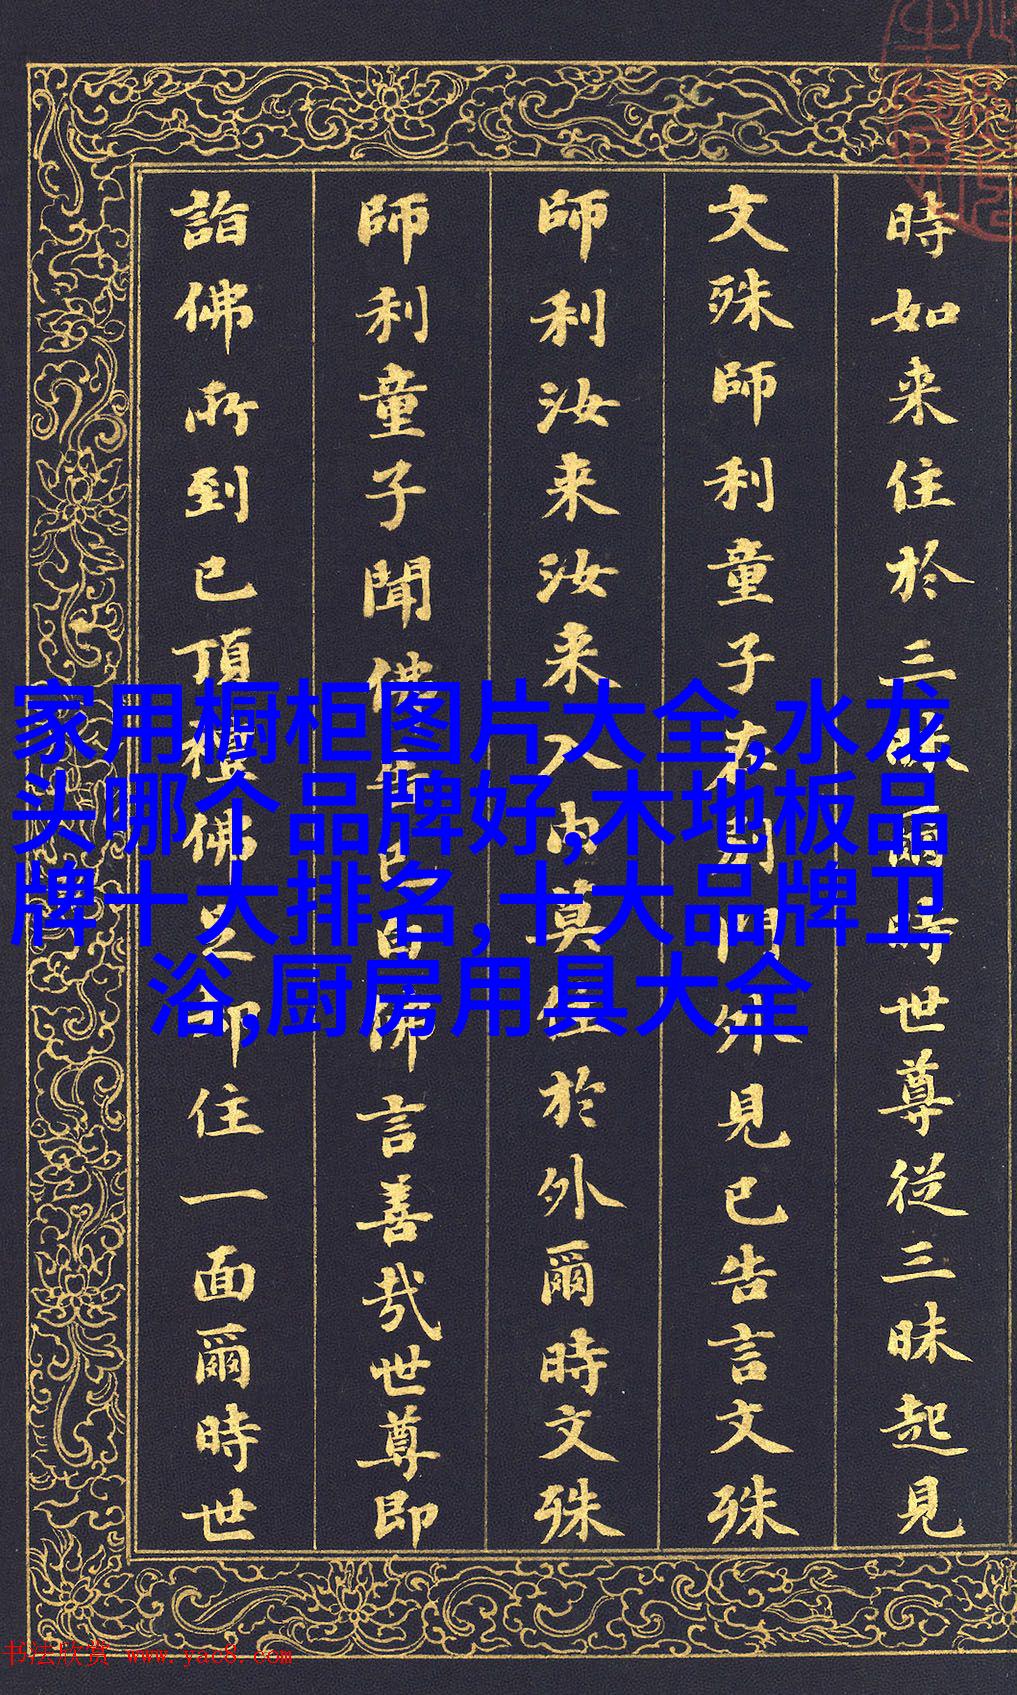 時如来住於三昧爾時世尊従三昧起見
文殊師利童子在別門外見已告言文殊
師利汝来汝来入内莫住於外爾時文殊
師利童子聞佛告已白佛言善哉世尊即
詣佛所到已頂禮佛足卻住一面爾時世
家用橱柜图片大全,水龙
头哪个品牌好,木地板品
牌十大排名,十大品牌卫
浴,厨房用具大全
书法欣赏 www.yac8.com